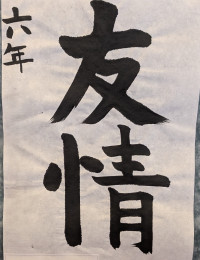 友情
六年